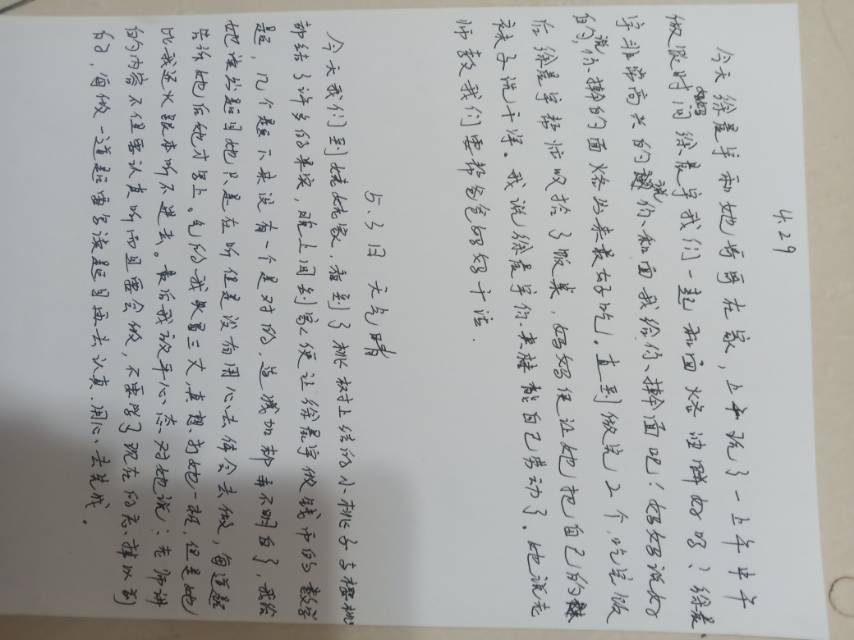 4.29
今天徐晨宇和她哥哥在家,上午玩了一上午中午
做饭时间妈妈徐晨宇我们一起和面烙油饼好吗?徐晨
宇非常高兴的说你和面我给你擀面吧!妈妈说好
的,你擀的面烙出来最好吃。直到做完2个,吃完饭
后徐晨宇帮忙收拾了饭桌,妈妈便让她把自己的
袜子洗干净。我说徐晨宇你真棒能自己劳动了。她说老
师教我们要帮爸爸妈妈干活.
5.3日 天气晴
今天我们到姥姥家,看到了桃树上结的小桃子与樱桃
都结了许多的果实,晚上回到家便让徐晨宇做钱币的数学
题,几个题下来没有一个是对的,连减加都弄不明白了,我给
她读的题目她只是在听但是没有用心去体会去做,每道题
告诉她后她才写上。气的我火冒三丈,真想打她一顿,但是她
比我还火根本听不进去。最后我放平心态对她说:老师讲
的内容不但要认真听而且要会做,不要学了现在的忘掉以前
的,每做一道题要多读题目再去认真.用心去完成。